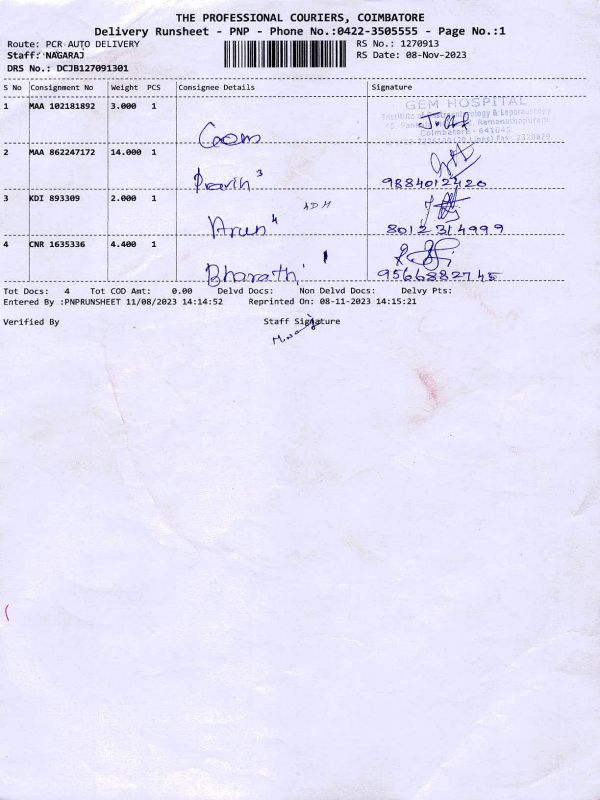 THE PROFESSIONAL COURIERS, COIMBATORE
Delivery Runsheet - PNP - Phone No.:0422-3505555 - Page No.:1
Route: PCR AUTO DELIVERY RS No.: 1270913
Staff: NAGARAJ RS Date: 08-Nov-2023
DRS No.: DCJB127091301
S No Consignment No Weight PCS Consignee Details Signature
1 MAA 102181892 3.000 1
GEM HOSPITAL
Coimbatore - 641045
2 MAA 862247172 14.000 1
9884012420
3 KDI 893309 2.000 1
Arun 4 8012314999
4 CNR 1635336 4.400 1
Bharathi 9566882745
Tot Docs: 4 Tot COD Amt: 0.00 Delvd Docs: Non Delvd Docs: Delvy Pts:
Entered By :PNPRUNSHEET 11/08/2023 14:14:52 Reprinted On: 08-11-2023 14:15:21
Verified By Staff Signature